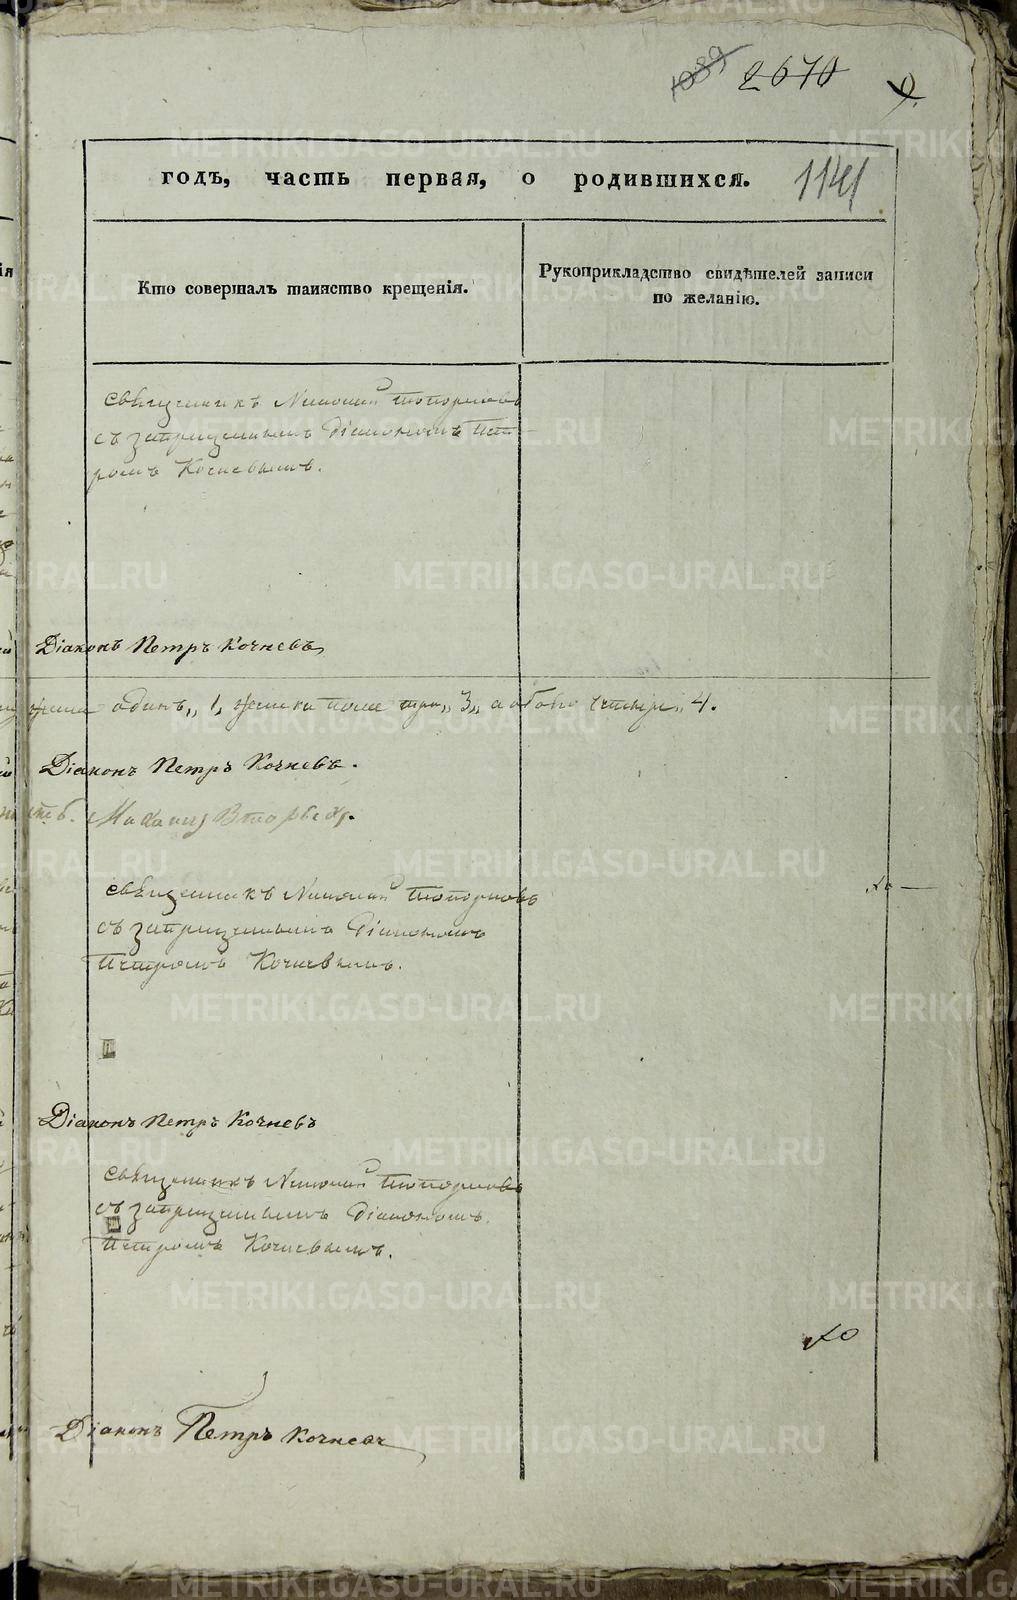 1039 2670
1141
годъ, часть первая, о родившихся.
Кто совершалъ таинство крещенія.
Рукоприкладство свидѣтелей записи
по желанію.
Священникъ Николай Топорковъ
съ запрещеннымъ Діакономъ Пет-
ромъ Кочневымъ.
Діаконъ Петръ Кочневъ
одинъ„ 1, женска пола три„ 3„ а обоего четыре„ 4.
Діаконъ Петръ Кочневъ.
Священникъ Николай Топорковъ
съ запрещеннымъ Діакономъ
Петромъ Кочневымъ.
Діаконъ Петръ Кочневъ
Священникъ Николай Топорковъ
съ запрещеннымъ Діакономъ
Петромъ Кочневымъ.
Діаконъ Петръ Кочневъ
METRIKI.GASO-URAL.RU